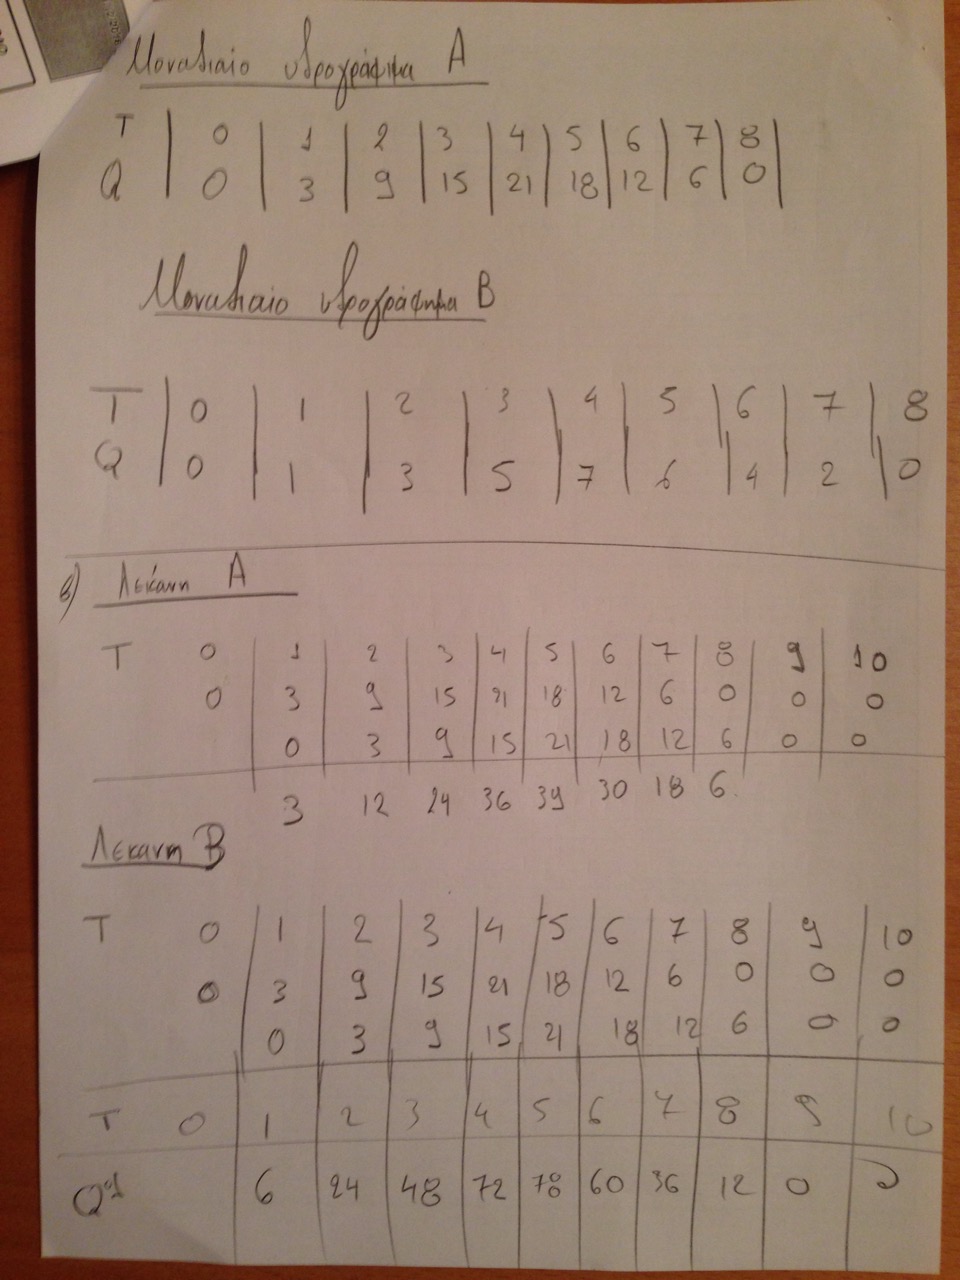 Μοναδιαίο υδρογράφημα Α
T | 0 | 1 | 2 | 3 | 4 | 5 | 6 | 7 | 8 |
Q | 0 | 3 | 9 | 15 | 21 | 18 | 12 | 6 | 0 |
Μοναδιαίο υδρογράφημα Β
T | 0 | 1 | 2 | 3 | 4 | 5 | 6 | 7 | 8
Q | 0 | 1 | 3 | 5 | 7 | 6 | 4 | 2 | 0
β) Λεκάνη Α
T 0 | 1 | 2 | 3 | 4 | 5 | 6 | 7 | 8 | 9 | 10
0 | 3 | 9 | 15 | 21 | 18 | 12 | 6 | 0 | 0 | 0
0 | 3 | 9 | 15 | 21 | 18 | 12 | 6 | 0 | 0
3 12 24 36 39 30 18 6
Λεκανη Β
T 0 | 1 | 2 | 3 | 4 | 5 | 6 | 7 | 8 | 9 | 10
0 | 3 | 9 | 15 | 21 | 18 | 12 | 6 | 0 | 0 | 0
0 | 3 | 9 | 15 | 21 | 18 | 12 | 6 | 0 | 0
T 0 | 1 | 2 | 3 | 4 | 5 | 6 | 7 | 8 | 9 | 10
6 | 24 | 48 | 72 | 78 | 60 | 36 | 12 | 0 | 0